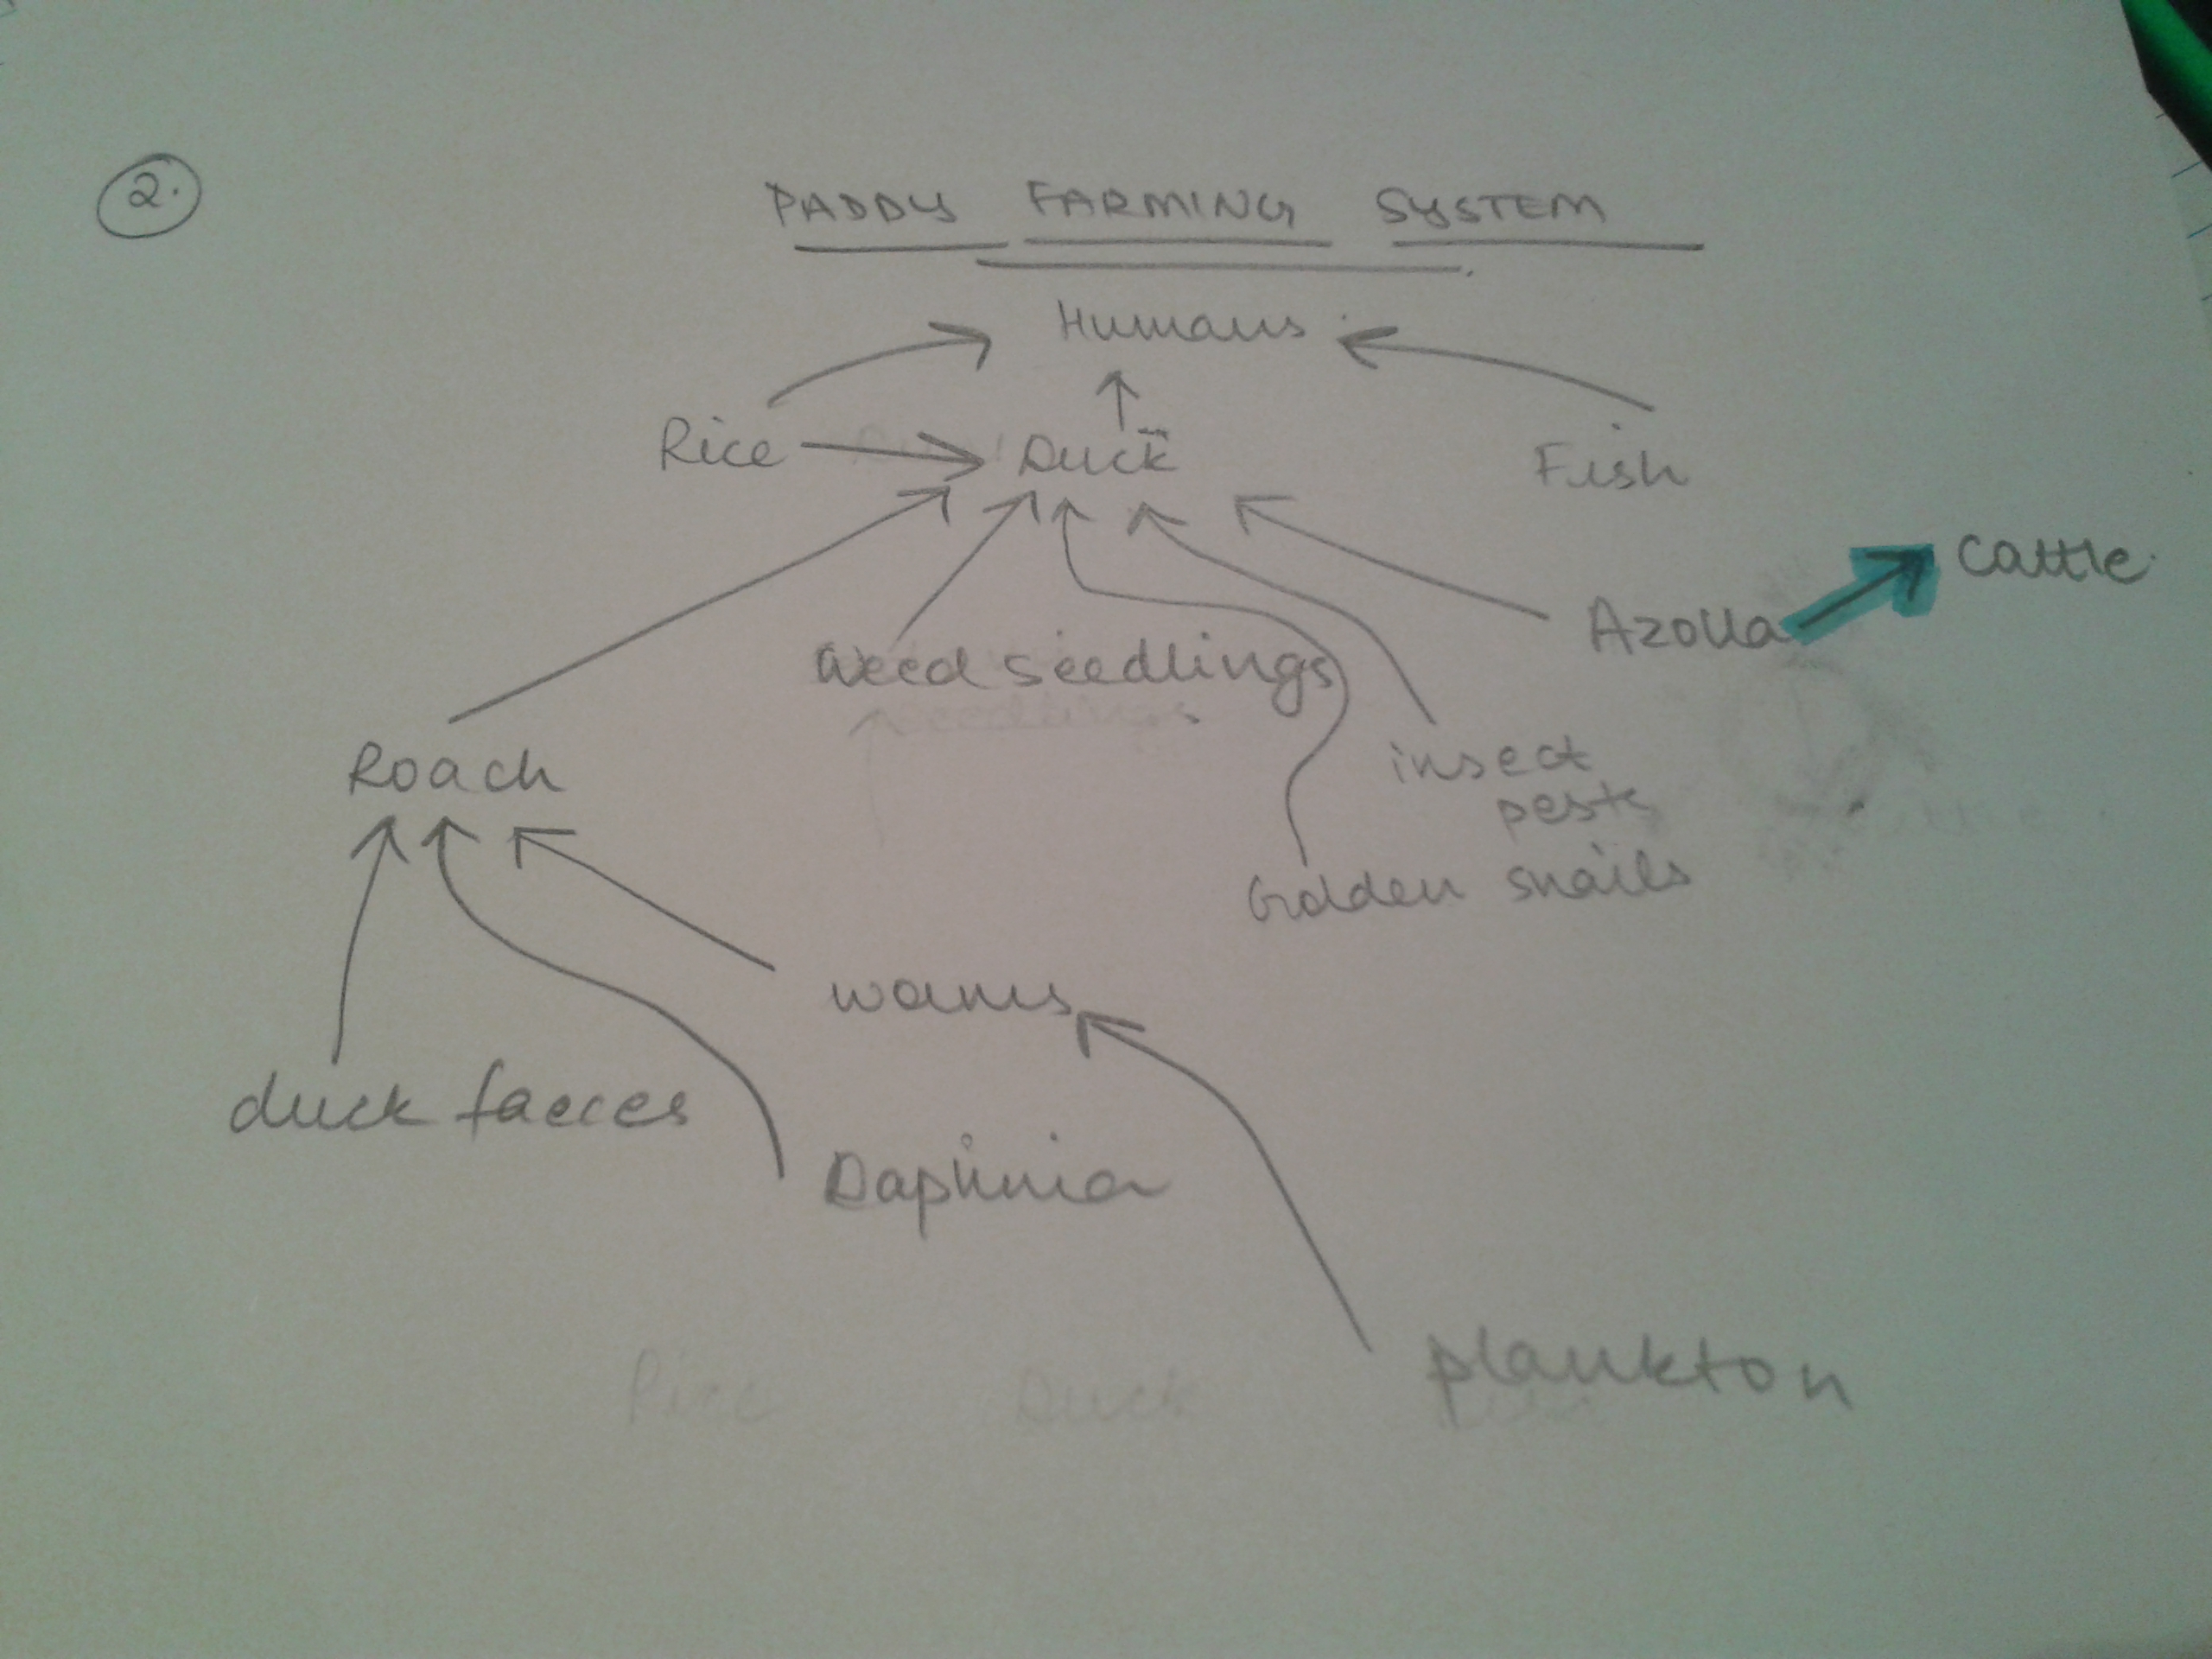 2.
PADDY FARMING SYSTEM
Humans
Rice Duck Fish
Cattle
Azolla
Weed seedlings
Roach
insect
pests
Golden snails
worms
duck faeces
Daphnia
plankton